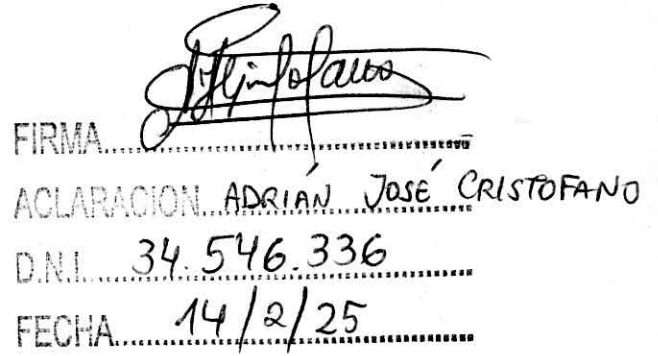 FIRMA
ACLARACION ADRIÁN JOSÉ CRISTOFANO
D.N.I. 34.546.336
FECHA 14/2/25